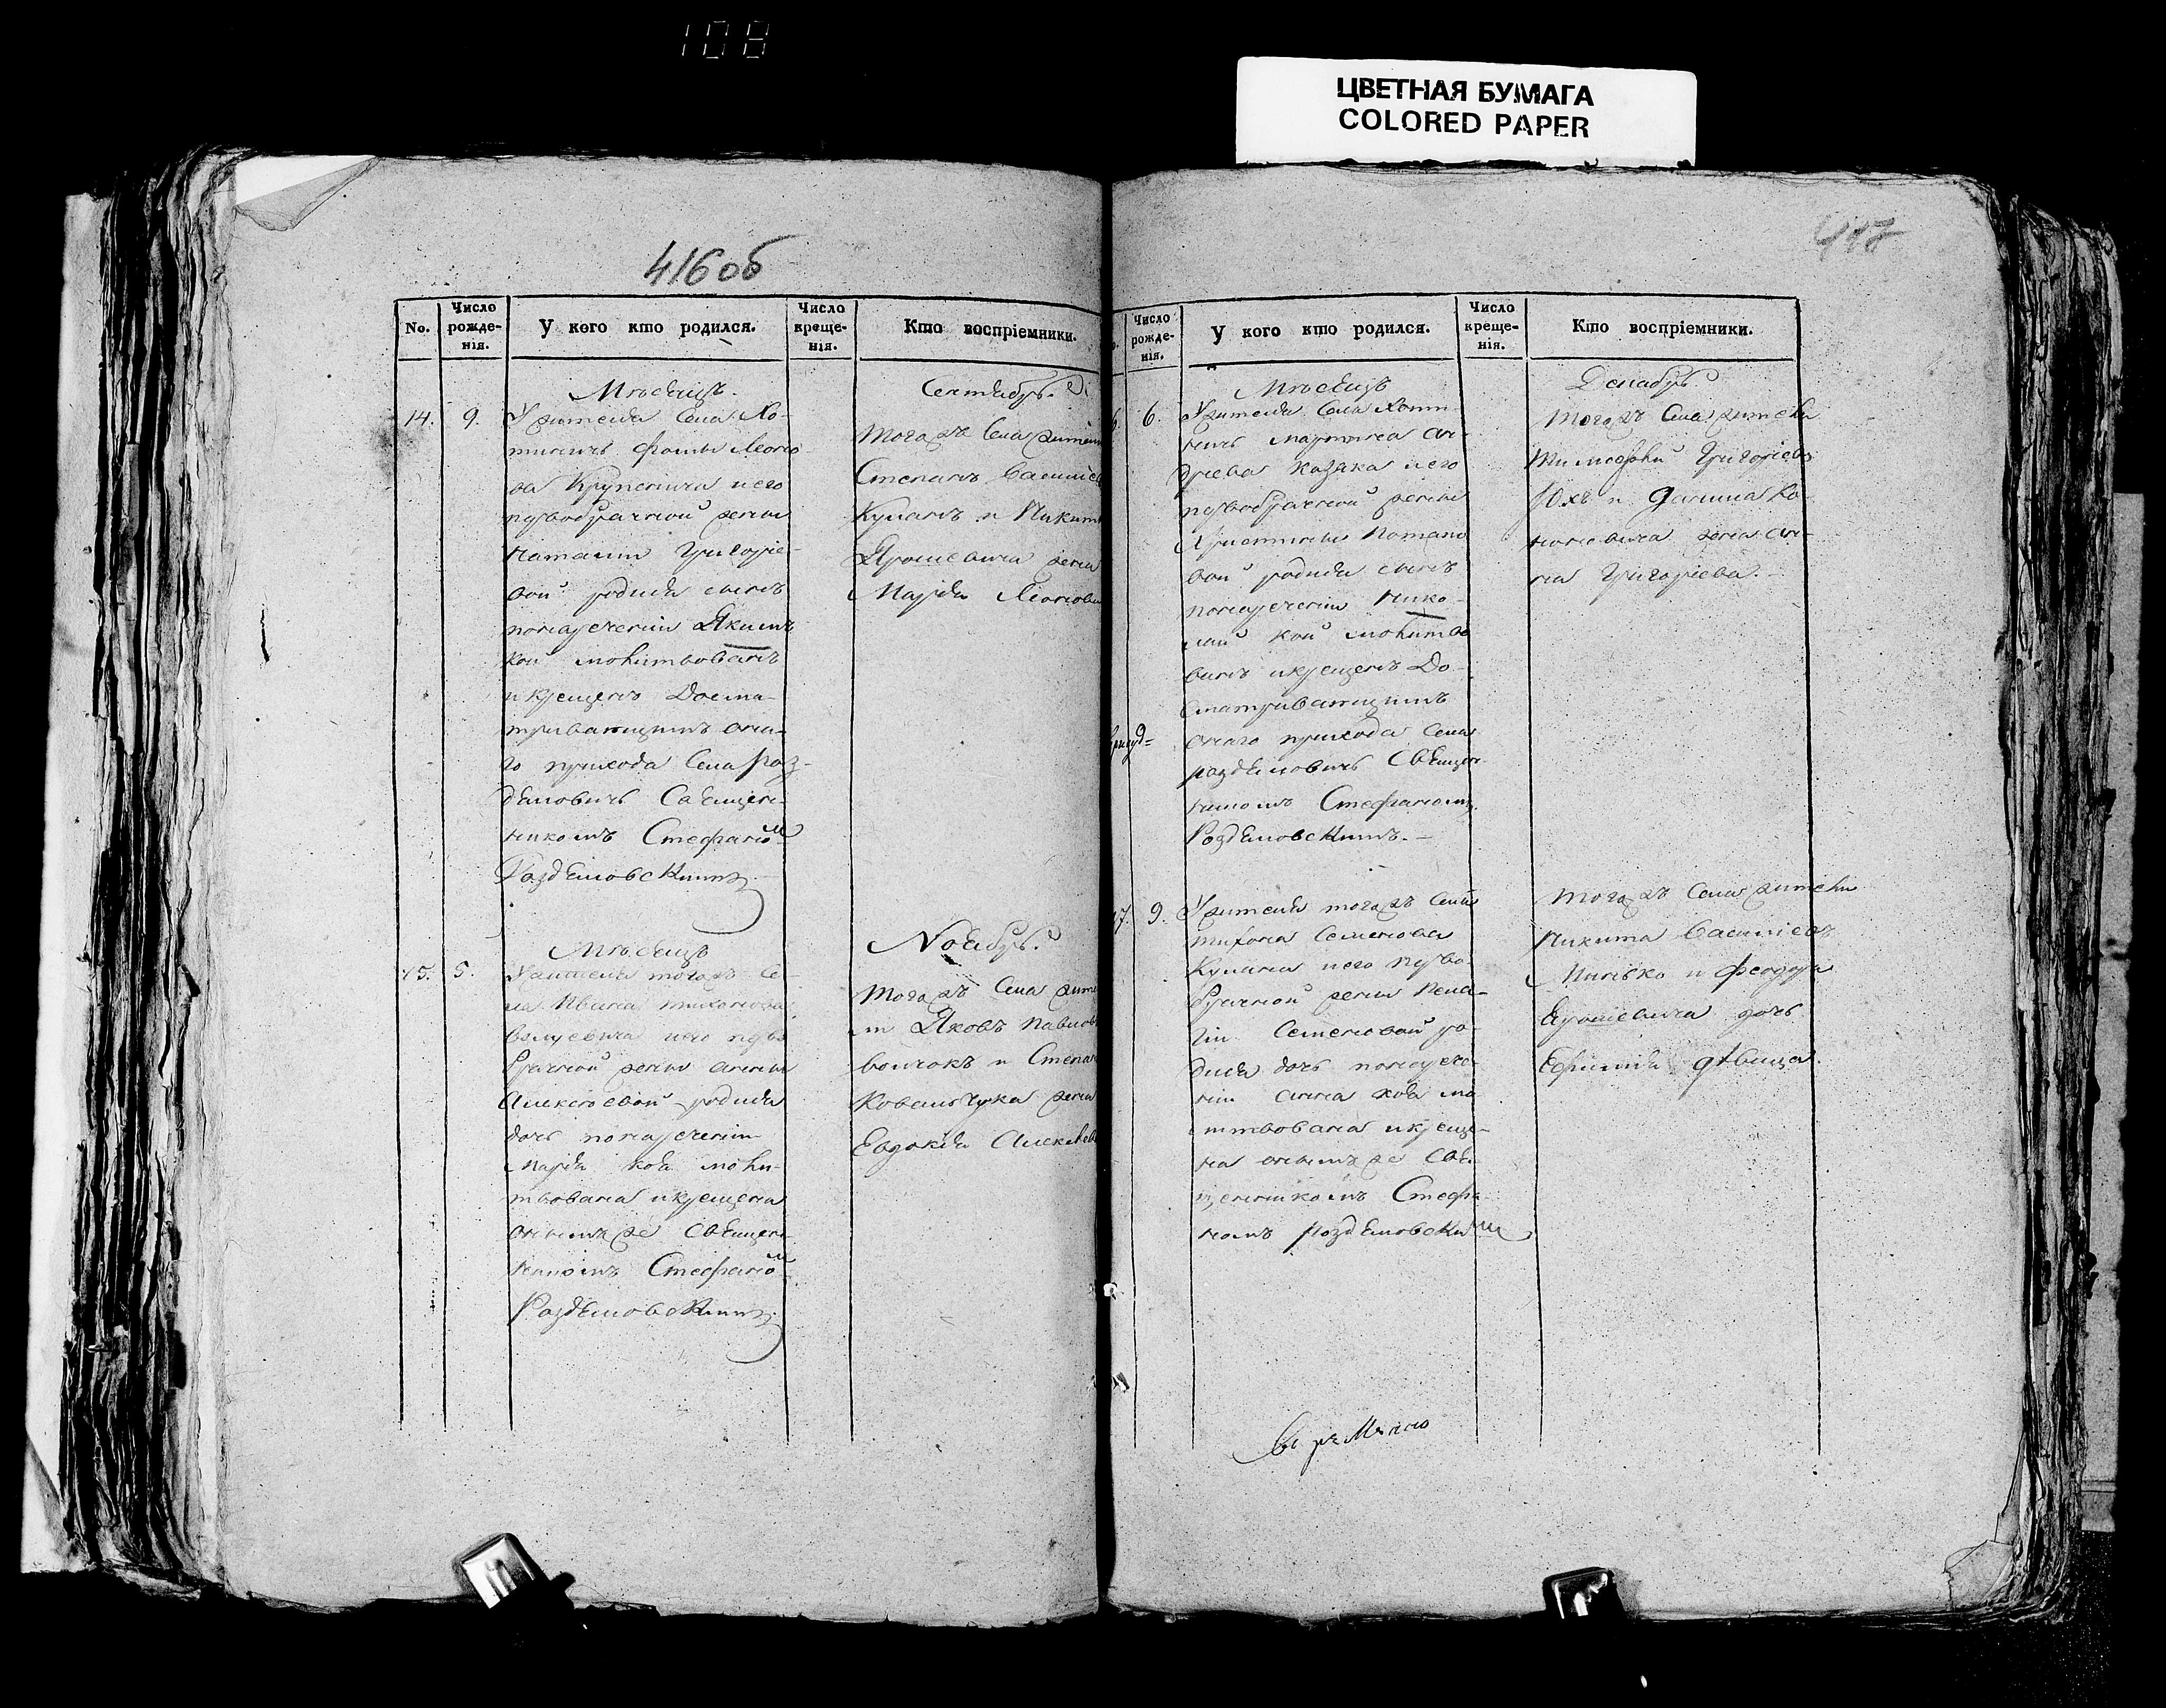 108
ЦВЕТНАЯ БУМАГА
COLORED PAPER
416об
417
No.
Число рожде-нія.
У кого кто родился.
Число креще-нія.
Кто воспріемники.
Мѣсяцъ.
Сентябрь.
14.
9.
Ужителя Села Хо-
тиничъ Фомы Леоно
ва Крупенича иего
первобрачной жены
Наталіи Григорiе-
вой родился сынъ
понареченіи Якимъ
кой молитвованъ
и крещенъ Досма-
тривающимъ она-
го прихода Села Роз-
дяловичъ Священ-
никомъ Стефаном
Роздяловскимъ
Тогожъ Села жители
Степанъ Василіев
Куланъ и Никиты
Ярошевича жена
Марья Леонова
Мѣсяцъ
Ноябрь.
15.
5.
Ужителя тогожъ Се-
ла Ивана Тихонова
иего перво
брачной жены Анны
Алексіевой родился
дочь понареченіи
Марья коя моли-
твована икрещена
онымъже Священ-
никомъ Стефаном
Роздяловскимъ
Тогожъ Села жите
ли Яковъ Павлов
Волчокъ и Степан
Ковальчука жена
Евдокія Алексѣев
Число рожде-нія.
У кого кто родился.
Число креще-нія.
Кто воспріемники.
Мѣсяцъ
Декабрь.
6.
Ужителя Села Хоти-
ничъ Мартина Ан-
дреева Козака иего
первобрачной жены
Христины Потапо
вой родился сынъ
понареченіи Нико-
лай кой молитво
ванъ икрещенъ До-
сматривающимъ
онаго прихода Села
Роздяловичъ Священ-
никомъ Стефаномъ
Роздяловскимъ.
Тогожъ Села жители
Тимофей Григоріевъ
Юхъ и Данила Ко-
нановича жена Ан-
на Григоріева.
17.
9.
Ужителя тогожъ Села
Тихона Семенова
Кулана иего перво-
брачной жены Пела-
гіи Семеновой ро-
дился дочь понарече-
ніи Анна коя мо
литвована икреще-
на онымъже Свя-
щенникомъ Стефа-
номъ Роздяловским
Тогожъ Села жители
Никита Василіевъ
Минько и Феодора
Ярошевича дочь
Ефимія дѣвица.